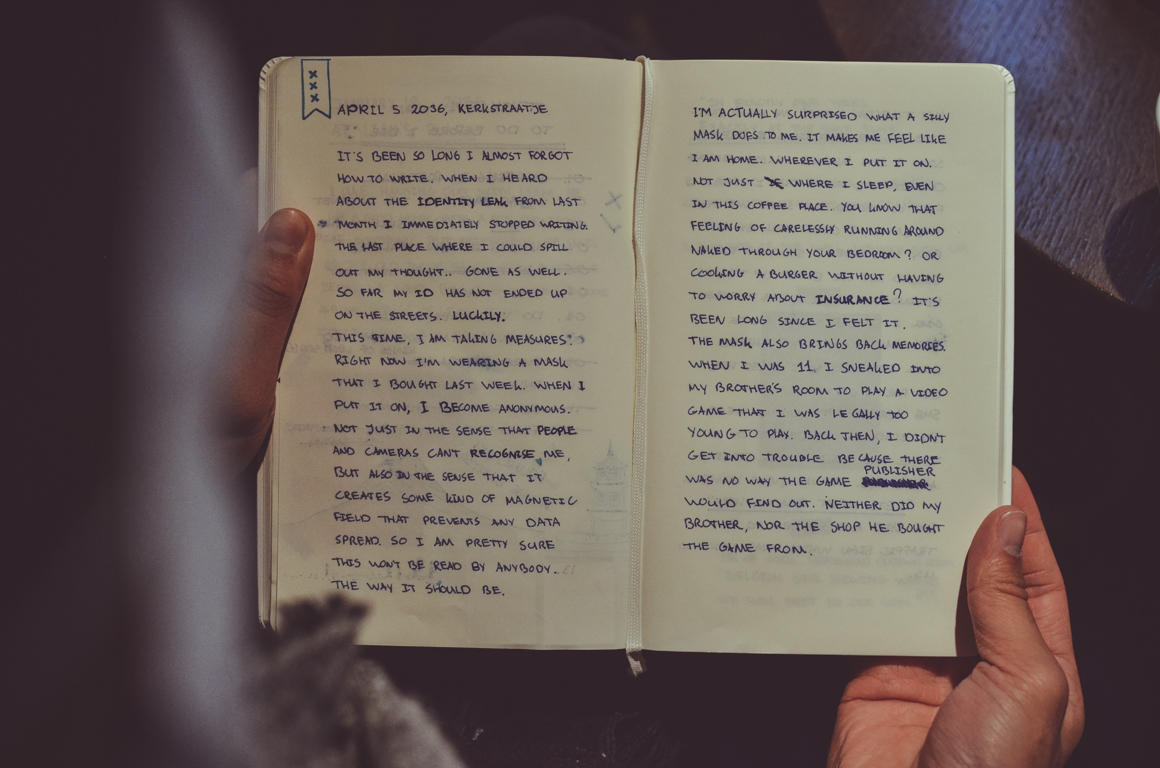 XXX
APRIL 5 2036, KERKSTRAATJE
IT'S BEEN SO LONG I ALMOST FORGOT
HOW TO WRITE. WHEN I HEARD
ABOUT THE IDENTITY LEAK FROM LAST
MONTH I IMMEDIATELY STOPPED WRITING.
THE LAST PLACE WHERE I COULD SPILL
OUT MY THOUGHT.. GONE AS WELL.
SO FAR MY ID HAS NOT ENDED UP
ON THE STREETS. LUCKILY.
THIS TIME, I AM TAKING MEASURES.
RIGHT NOW I'M WEARING A MASK
THAT I BOUGHT LAST WEEK. WHEN I
PUT IT ON, I BECOME ANONYMOUS.
NOT JUST IN THE SENSE THAT PEOPLE
AND CAMERAS CAN'T RECOGNISE ME,
BUT ALSO IN THE SENSE THAT IT
CREATES SOME KIND OF MAGNETIC
FIELD THAT PREVENTS ANY DATA
SPREAD. SO I AM PRETTY SURE
THIS WON'T BE READ BY ANYBODY..
THE WAY IT SHOULD BE.
I'M ACTUALLY SURPRISED WHAT A SILLY
MASK DOES TO ME. IT MAKES ME FEEL LIKE
I AM HOME. WHEREVER I PUT IT ON.
NOT JUST WHERE I SLEEP, EVEN
IN THIS COFFEE PLACE. YOU KNOW THAT
FEELING OF CARELESSLY RUNNING AROUND
NAKED THROUGH YOUR BEDROOM? OR
COOKING A BURGER WITHOUT HAVING
TO WORRY ABOUT INSURANCE? IT'S
BEEN LONG SINCE I FELT IT.
THE MASK ALSO BRINGS BACK MEMORIES.
WHEN I WAS 11, I SNEAKED INTO
MY BROTHER'S ROOM TO PLAY A VIDEO
GAME THAT I WAS LEGALLY TOO
YOUNG TO PLAY. BACK THEN, I DIDN'T
GET INTO TROUBLE BECAUSE THERE
WAS NO WAY THE GAME PUBLISHER
WOULD FIND OUT. NEITHER DID MY
BROTHER, NOR THE SHOP HE BOUGHT
THE GAME FROM.